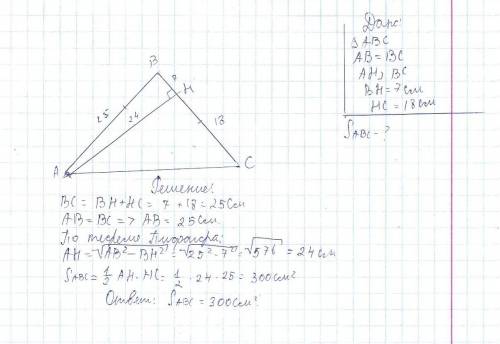 Дано:
△ABC
AB = BC
AH ⊥ BC
BH = 7 см
HC = 18 см
S ABC - ?
B
7
H
25
24
18
A
C
Решение:
BC = BH + HC = 7 + 18 = 25 см
AB = BC => AB = 25 см
По теореме Пифагора:
AH = √AB² - BH² = √25² - 7² = √576 = 24 см
S ABC = 1/2 AH · HC = 1/2 · 24 · 25 = 300 см²
Ответ: S ABC = 300 см²